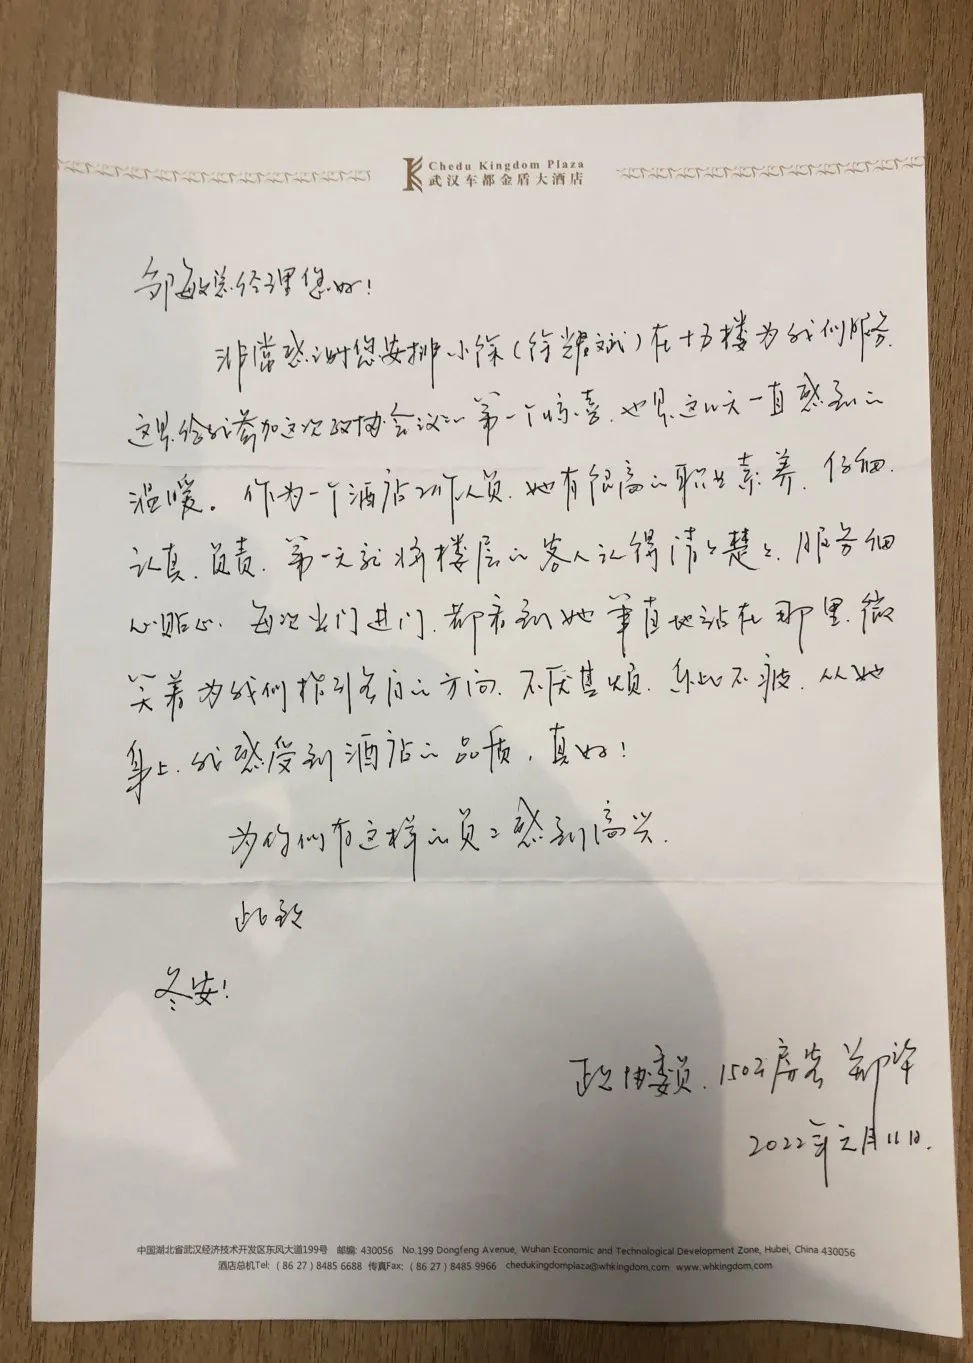 Chedu Kingdom Plaza
武汉车都金盾大酒店
邹敏总经理您好!
非常感谢您安排小徐(徐耀斌)在十五楼为我们服务.
这是给我参加这次政协会议的第一个惊喜.也是这几天一直感到的
温暖。作为一个酒店工作人员.她有很高的职业素养.仔细.
认真.负责.第一天就将楼层的客人认得清清楚楚.服务细
心贴心.每次出门进门.都看到她笔直地站在那里.微
笑着为我们指引各自的方向.不厌其烦.乐此不疲.从她
身上.我感受到酒店的品质,真好!
为你们有这样的员工感到高兴.
此致
冬安!
政协委员.房客 郑
2022年元月11日.
中国湖北省武汉经济技术开发区东风大道199号 邮编: 430056 No.199 Dongfeng Avenue, Wuhan Economic and Technological Development Zone, Hubei, China 430056
酒店总机Tel: (86 27) 8485 6688 传真Fax: (86 27) 8485 9966 chedukingdomplaza@whkingdom.com www.whkingdom.com